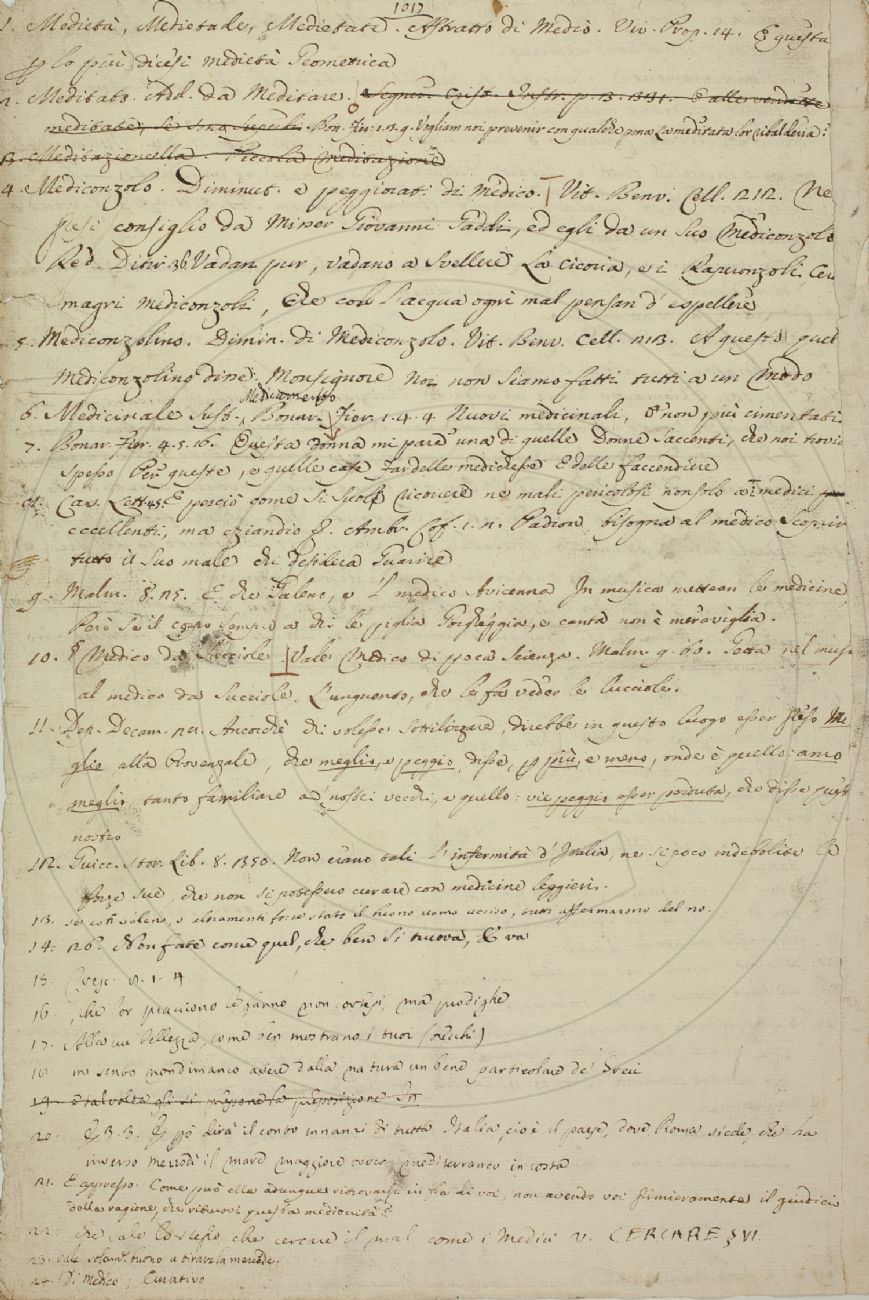 1017
1. Medietà, Medietade, Medietate. Astratto di Medio. Viv. Prop. 14. E questa
p lo più dicesi medietà Geometrica
2. Meditato. Add. da Meditare. Segner. Crist. Instr. p. 13. 1331. E alle vendette
meditate, se Bon. Fier. 1. 3. 9. Vogliam noi prevenir con qualche pena La meditata lor ribalderia?
13. Meditazioncella. Piccola meditazione
4. Mediconzolo. Diminut. e peggiorat. di Medico. Vit. Benv. Cell. 212. Ne
presi consiglio da Misser Giovanni Gaddi, ed egli da un suo Mediconzolo
Red. Ditir. 36 Vadan pur, vadano a svellere La cicoria, e i Raperonzoli Cer
magri mediconzoli, Che coll'acqua ogni mal pensan d'espellere
5. Mediconzolino. Dimin. di Mediconzolo. Vit. Benv. Cell. 213. A questo quel
Mediconzolino disse: Monsignore noi non siamo fatti tutti a un modo
Medicamento
6. Medicinale Sust. Bonar. Fier. 1. 4. 4 Nuovi medicinali, e non più cimentati.
7. Bonar. Fier. 4. 5. 16. Questa donna mi pare una di quelle Donne saccenti, che noi trovia
spesso Per queste, e quelle case Fardelle medichesse E delle faccendiere
8. Car. Lett. E perciò come si suole ricorrere ne mali pericolosi non solo a i medici
eccellenti, ma eziandio F. Ambr. Cof. 1. 1. Padron, bisogna al medico scoprir
tutto il suo male chi desidera Guarire
9. Malm. 8. 25. E che Galeno, e 'l medico Avicenna In musica mettean le medicine
Però se il corpo sempre a chi le piglia Gorgheggia, e canta non è meraviglia.
10. E Medico da Succiole. Vale Medico di poca scienza. Malm. 9. 60. Getta nel muso
al medico da succiole. L'unguento, che le fa veder le lucciole.
11. Dep. Decam. 121. Ancorchè chi volesse sottilizzare, direbbe in questo luogo esser preso Me
glio alla Provenzale, che meglio, e peggio disse, p più, e meno, onde è quello: amo
meglio, tanto familiare a' nostri vecchi, e quello: vie peggio esser perduta, che disse quest
nostro
112. Guicc. Stor. Lib. 8. 1350. Non erano tali l'infermità d'Italia, ne si poco indebolite le
forze sue, che non si potessero curare con medicine leggieri.
13. se cott veleno, o altramenti fosse stato il buono uomo ucciso, tutti affermarono del no.
14. 126. Non fate come quel, che ben si trova, E va
15. 8. 1. 4
16. , che lor piaciono le fanno non cortesi, ma prodighe
17. Alla cui bellezza, come ben mostrano i tuoi (occhi)
18. mi sento nondimanco avere dalla natura un bene particolare de' Greci
19. E talvolta gli si prepone la preposizione In
20. E dirà il conto innanzi di tutta Italia, cioè il paese, dove Roma siede, che ha
inverso merrodi il mare maggiore overo mediterraneo in costa
21. E appresso. Come può ella adunque ritrovarsi in fra di voi, non avendo voi primieramente il giudicio
della ragione, che ritruovi questa mediocrità?
22. che vale lo stesso, che cercare il mal come i Medici V. CERCARE § VI.
23. Vale solam. buono a tirar la mercede.
24. Di medico, Curativo